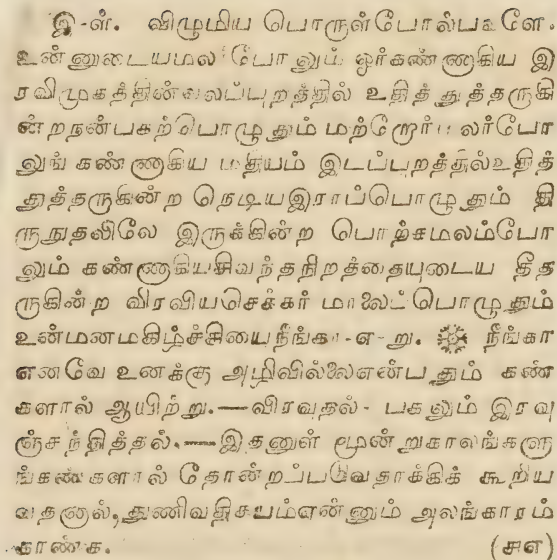 இ-ள். விழுமிய பொருள்போல்பவளே.
உன்னுடையமலர்போலும் ஓர்கண்ணாகிய இ
ரவிமுகத்தின்வலப்புறத்தில் உதித்துத்தருகி
ன்றநன்பகற்பொழுதும் மற்றோர்மலர்போ
லுங் கண்ணாகிய மதியம் இடப்புறத்தில்உதித்
துத்தருகின்ற நெடியஇராப்பொழுதும் தி
ருநுதலிலே இருக்கின்ற பொற்கமலம்போ
லும் கண்ணாகியசிவந்தநிறத்தையுடைய தீத
ருகின்ற விரவியசெக்கர் மாலைப்பொழுதும்
உன்மனமகிழ்ச்சியைநீங்கா-எ-று. நீங்கா
எனவே உனக்கு அழிவில்லைஎன்பதும் கண்
களால் ஆயிற்று.—விரவுதல்- பகலும் இரவு
ஞ்சந்தித்தல்.—இதனுள் மூன்றுகாலங்களு
ங்கண்களால் தோன்றப்படுவதாக்கிக் கூறிய
வதனால், துணிவதிசயம்என்னும் அலங்காரம்
காண்க. (௪௭)